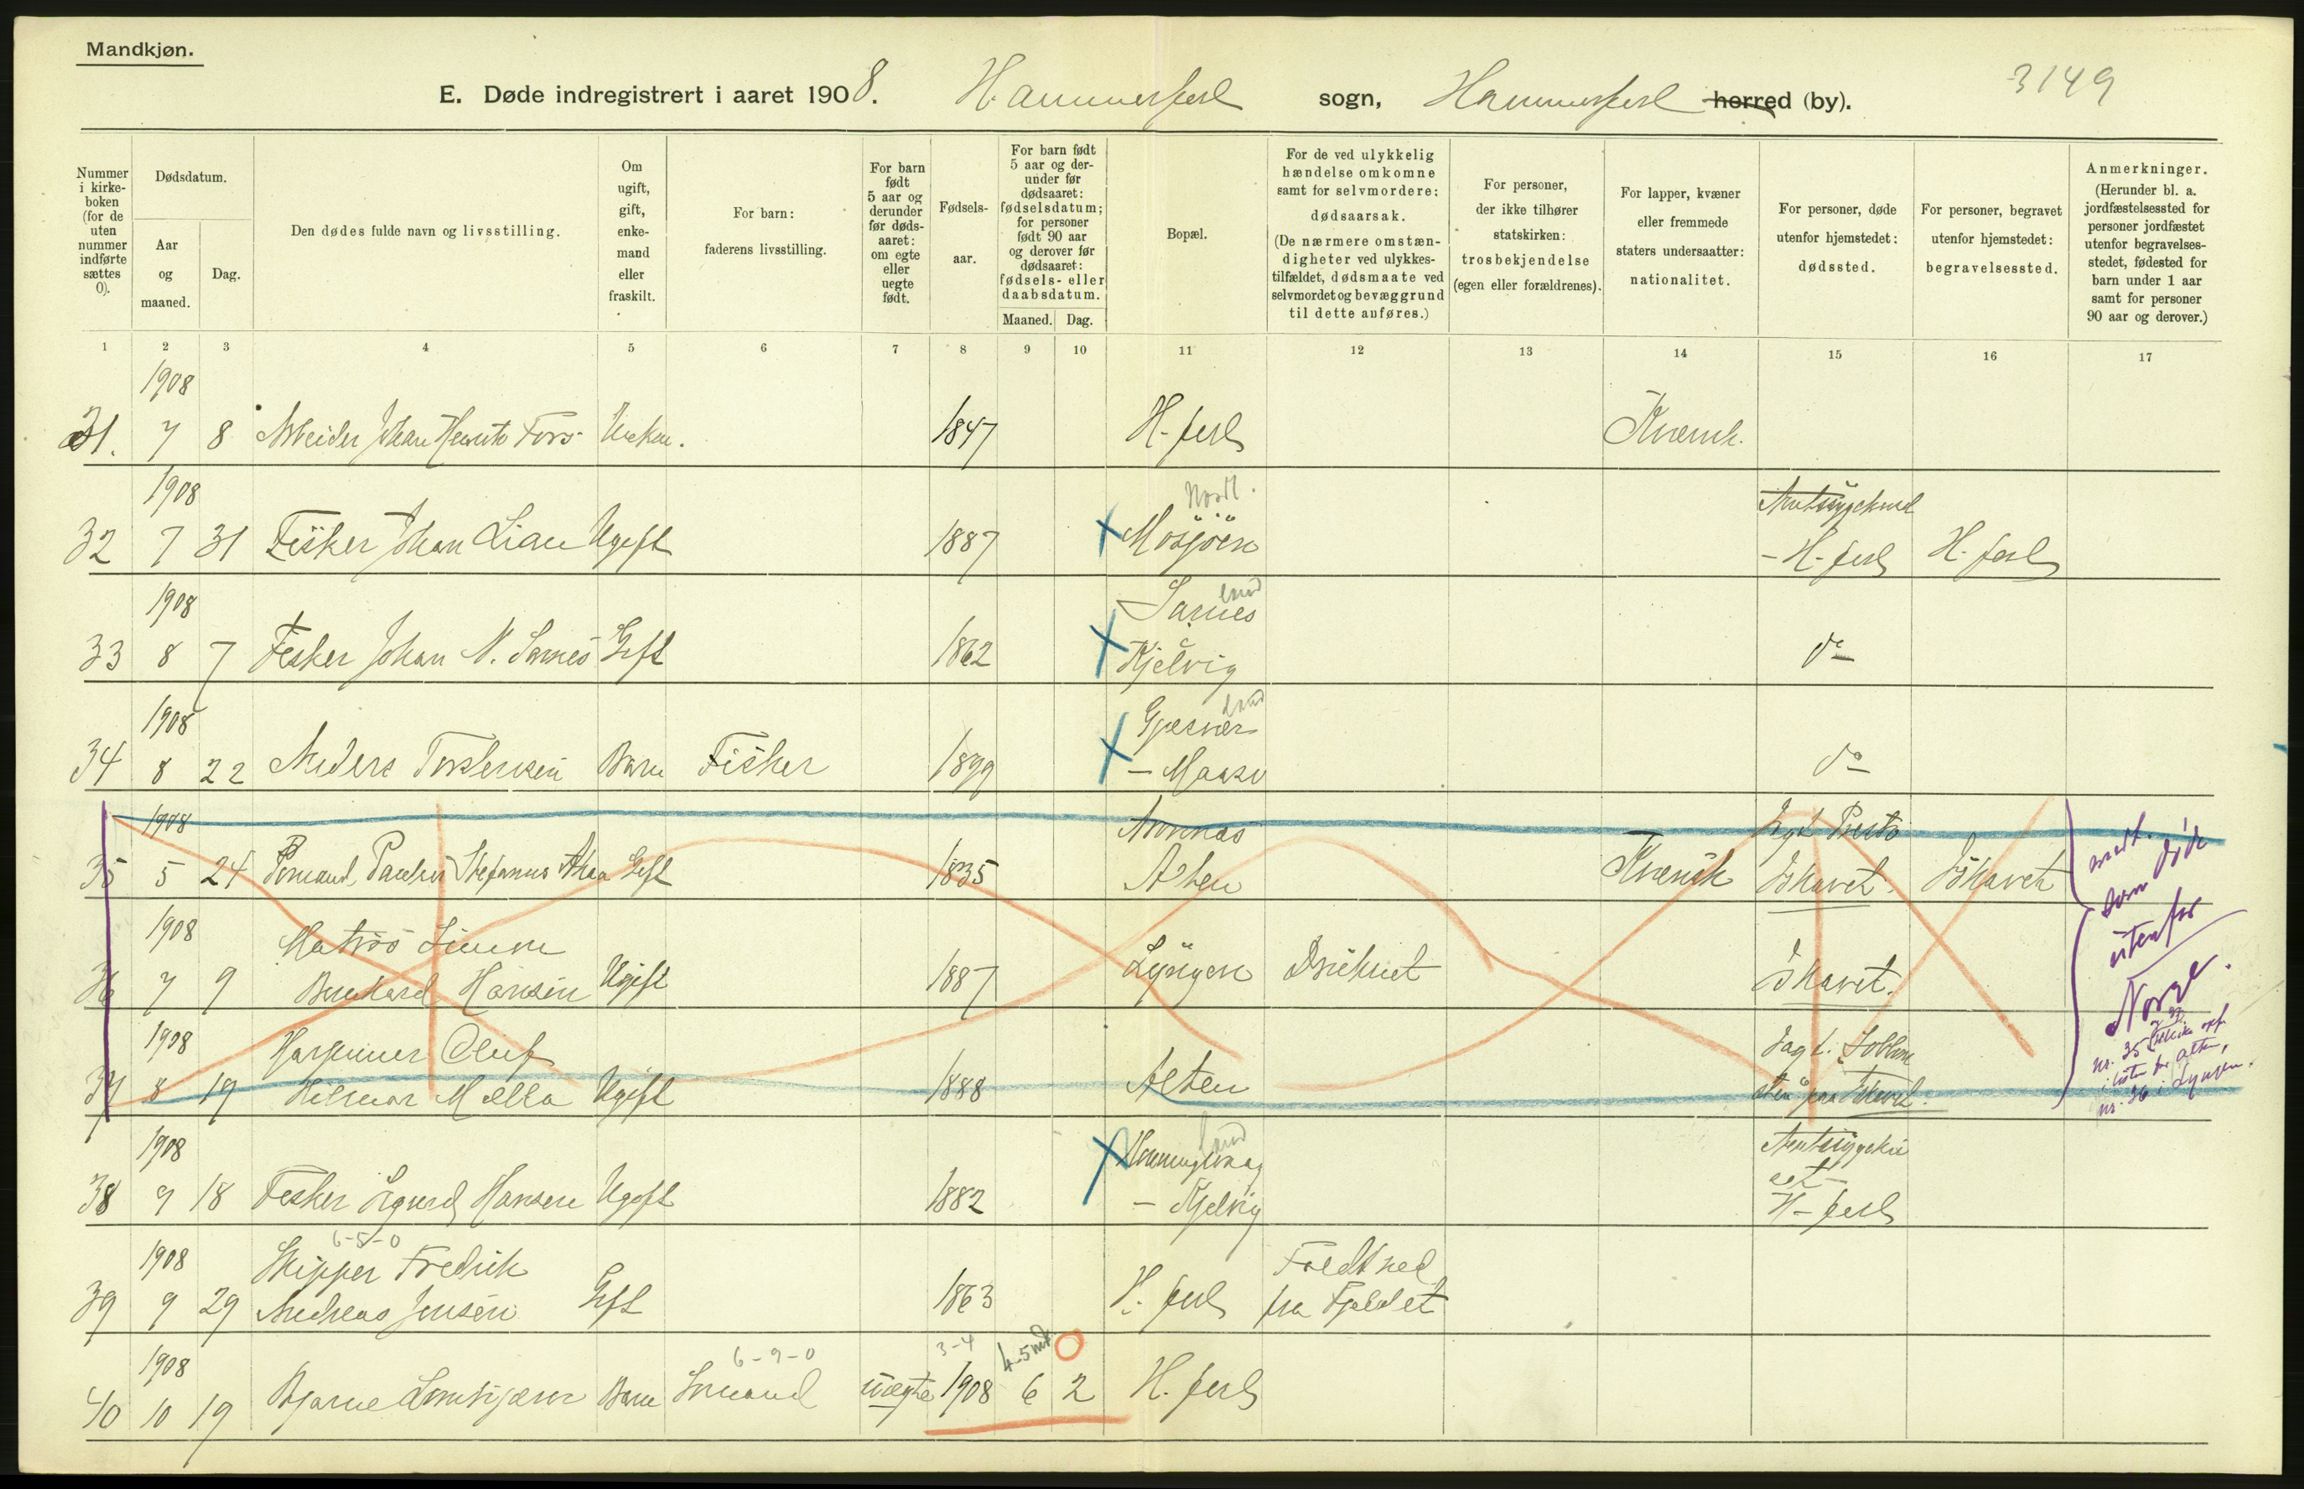 Mandkjøn.
E. Døde indregistrert i aaret 1908. Hammerfest sogn, Hammerfest herred (by). 3149
Nummer i kirkeboken (for de uten nummer indførte sættes 0).
Dødsdatum.
Aar og maaned.
Dag.
Den dødes fulde navn og livsstilling.
Om ugift, gift, enkemand eller fraskilt.
For barn: faderens livsstilling.
For barn født 5 aar og derunder før dødsaaret: om egte eller uegte født.
Fødselsaar.
For barn født 5 aar og derunder før dødsaaret: fødselsdatum; for personer født 90 aar og derover før dødsaaret: fødsels- eller daabsdatum.
Maaned. Dag.
Bopæl.
For de ved ulykkelig hændelse omkomne samt for selvmordere: dødsaarsak. (De nærmere omstændigheter ved ulykkestilfældet, dødsmaate ved selvmordet og bevæggrund til dette anføres.)
For personer, der ikke tilhører statskirken: trosbekjendelse (egen eller forældrenes).
For lapper, kvæner eller fremmede staters undersaatter: nationalitet.
For personer, døde utenfor hjemstedet: dødssted.
For personer, begravet utenfor hjemstedet: begravelsessted.
Anmerkninger. (Herunder bl. a. jordfæstelsessted for personer jordfæstet utenfor begravelsesstedet, fødested for barn under 1 aar samt for personer 90 aar og derover.)
1 2 3 4 5 6 7 8 9 10 11 12 13 14 15 16 17
1908
31. 7 8 Arbeider Johan Fors 1847 H-fest Kvænsk.
1908 Nordl. Amtssygehuset
32 7 31 Fisker Johan Lian Ugift 1887 Mosjöen - H-fest H-fest
1908 Sarnes land
33 8 7 Fisker Johan N. Sarnes Gift 1862 Kjelvig do
1908 Gjesvær land
34 8 22 Anders Torstensen Barn Fisker 1899 - Maasø do
1908 Jagt
35 5 24 Stefanus Gift 1835 Alten Kvænsk Ishavet. Ishavet
1908 Matros
36 7 9 Hansen Ugift 1887 Lyngen Druknet Ishavet.
1908 Oluf Jagt.
37 8 19 Hilmar Mella Ugift 1888 Alten paa Ishavet.
1908 Honningsvaag land
38 9 18 Fisker Sigurd Hansen Ugift 1882 - Kjelvig H-fest
6-5-0
1908 Skipper Fredrik Faldt ned
39 9 29 Andreas Jensen Gift 1863 H-fest fra Fjeldet
1908 6-9-0 3-4 4-5 md
40 10 19 Bjarne Barn Sömand uægte 1908 6 2 H-fest
som døde
utenfor
Norge.
nr. 35
nr. 36 i Lyngen.